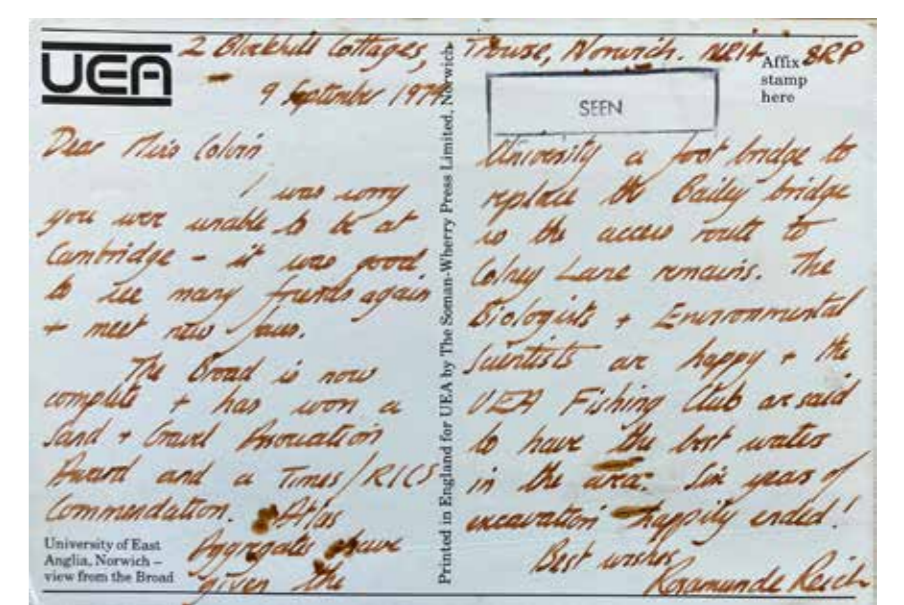 UEA
2 Blockhill Cottages, Trowse, Norwich. NR14 8RP
9 September 1979
Affix
stamp
here
SEEN
Dear Miss Colvin
I was sorry
you were unable to be at
Cambridge – it was good
to see many friends again
+ meet new faces.
The Broad is now
complete + has won a
Sand + Gravel Association
Award and a Times/RICS
Commendation. Atlas
Aggregates have
given the
University of East
Anglia, Norwich –
view from the Broad
Printed in England for UEA by The Soman-Wherry Press Limited, Norwich
University a foot bridge to
replace the Bailey bridge
so the access route to
Colney Lane remains. The
Biologists + Environmental
Scientists are happy + the
UEA Fishing Club are said
to have the best waters
in the area. Six years of
excavation happily ended!
Best wishes
Rosamunde Reich